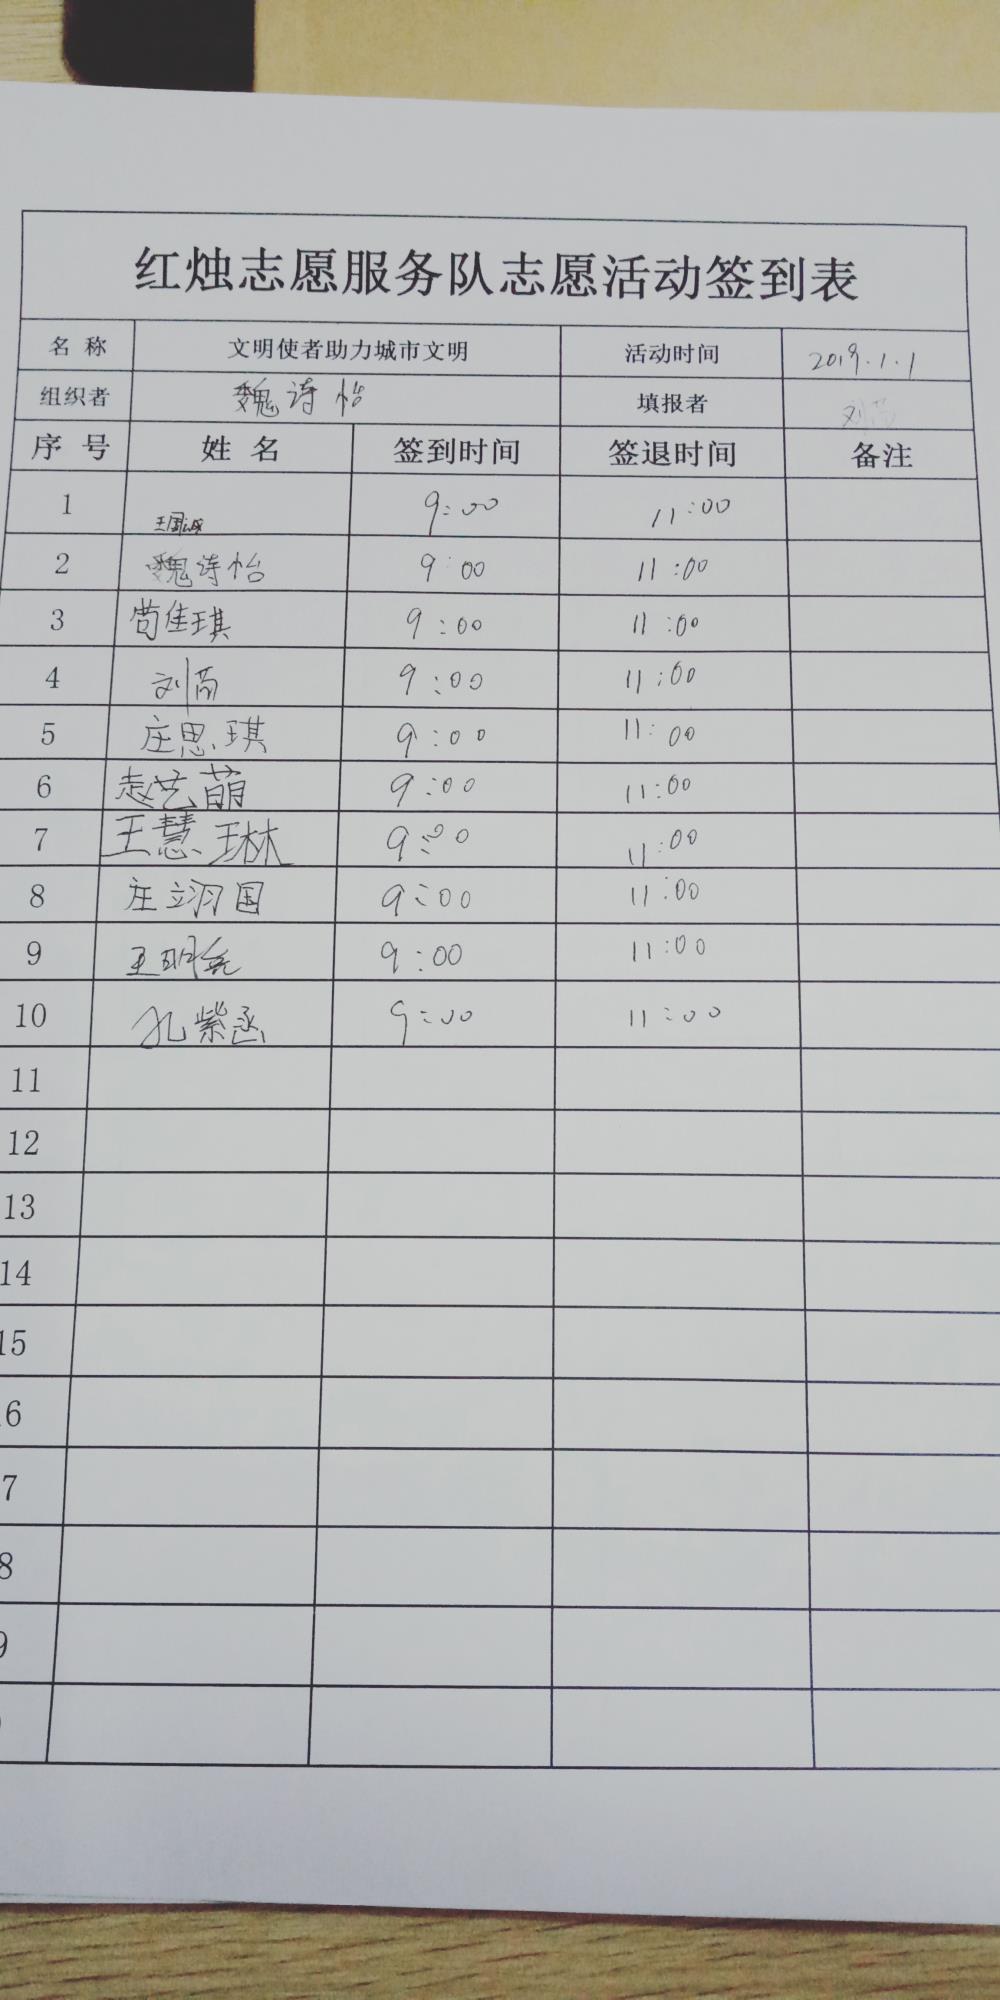 红烛志愿服务队志愿活动签到表
名 称 文明使者助力城市文明 活动时间 2019.1.1
组织者 魏诗怡 填报者
序 号 姓 名 签到时间 签退时间 备注
1 王国诚 9:00 11:00
2 魏诗怡 9:00 11:00
3 苟佳琪 9:00 11:00
4 刘芮 9:00 11:00
5 庄思琪 9:00 11:00
6 赵艺萌 9:00 11:00
7 王慧琳 9:00 11:00
8 庄翊国 9:00 11:00
9 王明尧 9:00 11:00
10 孔紫函 9:00 11:00
11
12
13
14
15
6
7
8
9